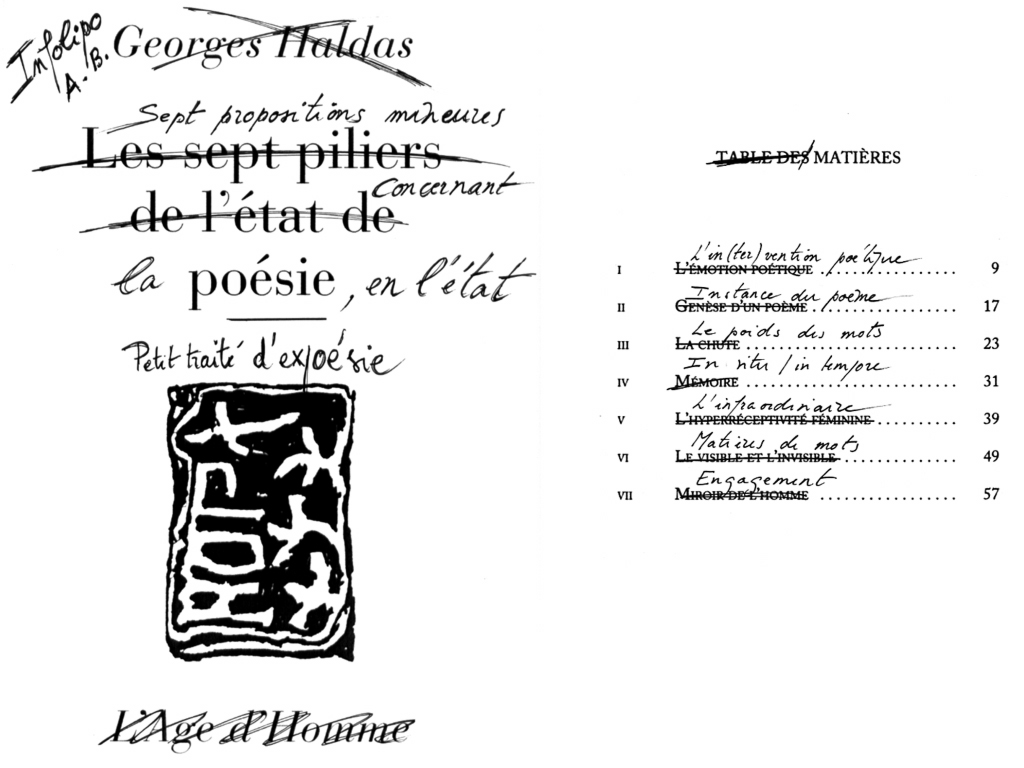 Infolipo
A.B.
Georges Haldas
Sept propositions mineures
Les sept piliers
concernant
de l'état de
la poésie, en l'état
Petit traité d'expoésie
L'Age d'Homme
TABLE DES MATIÈRES
L'in(ter)vention poétique
I L'ÉMOTION POÉTIQUE . . . . . . . . . . . . . . . . 9
Instance du poème
II GENÈSE D'UN POÈME . . . . . . . . . . . . . . . . 17
Le poids des mots
III LA CHUTE . . . . . . . . . . . . . . . . . . . . . . . . 23
In situ / in tempore
IV MÉMOIRE . . . . . . . . . . . . . . . . . . . . . . . . 31
L'infraordinaire
V L'HYPERRÉCEPTIVITÉ FÉMININE . . . . . . . . . 39
Matières de mots
VI LE VISIBLE ET L'INVISIBLE . . . . . . . . . . . . . 49
Engagement
VII MIROIR DE L'HOMME . . . . . . . . . . . . . . . . 57